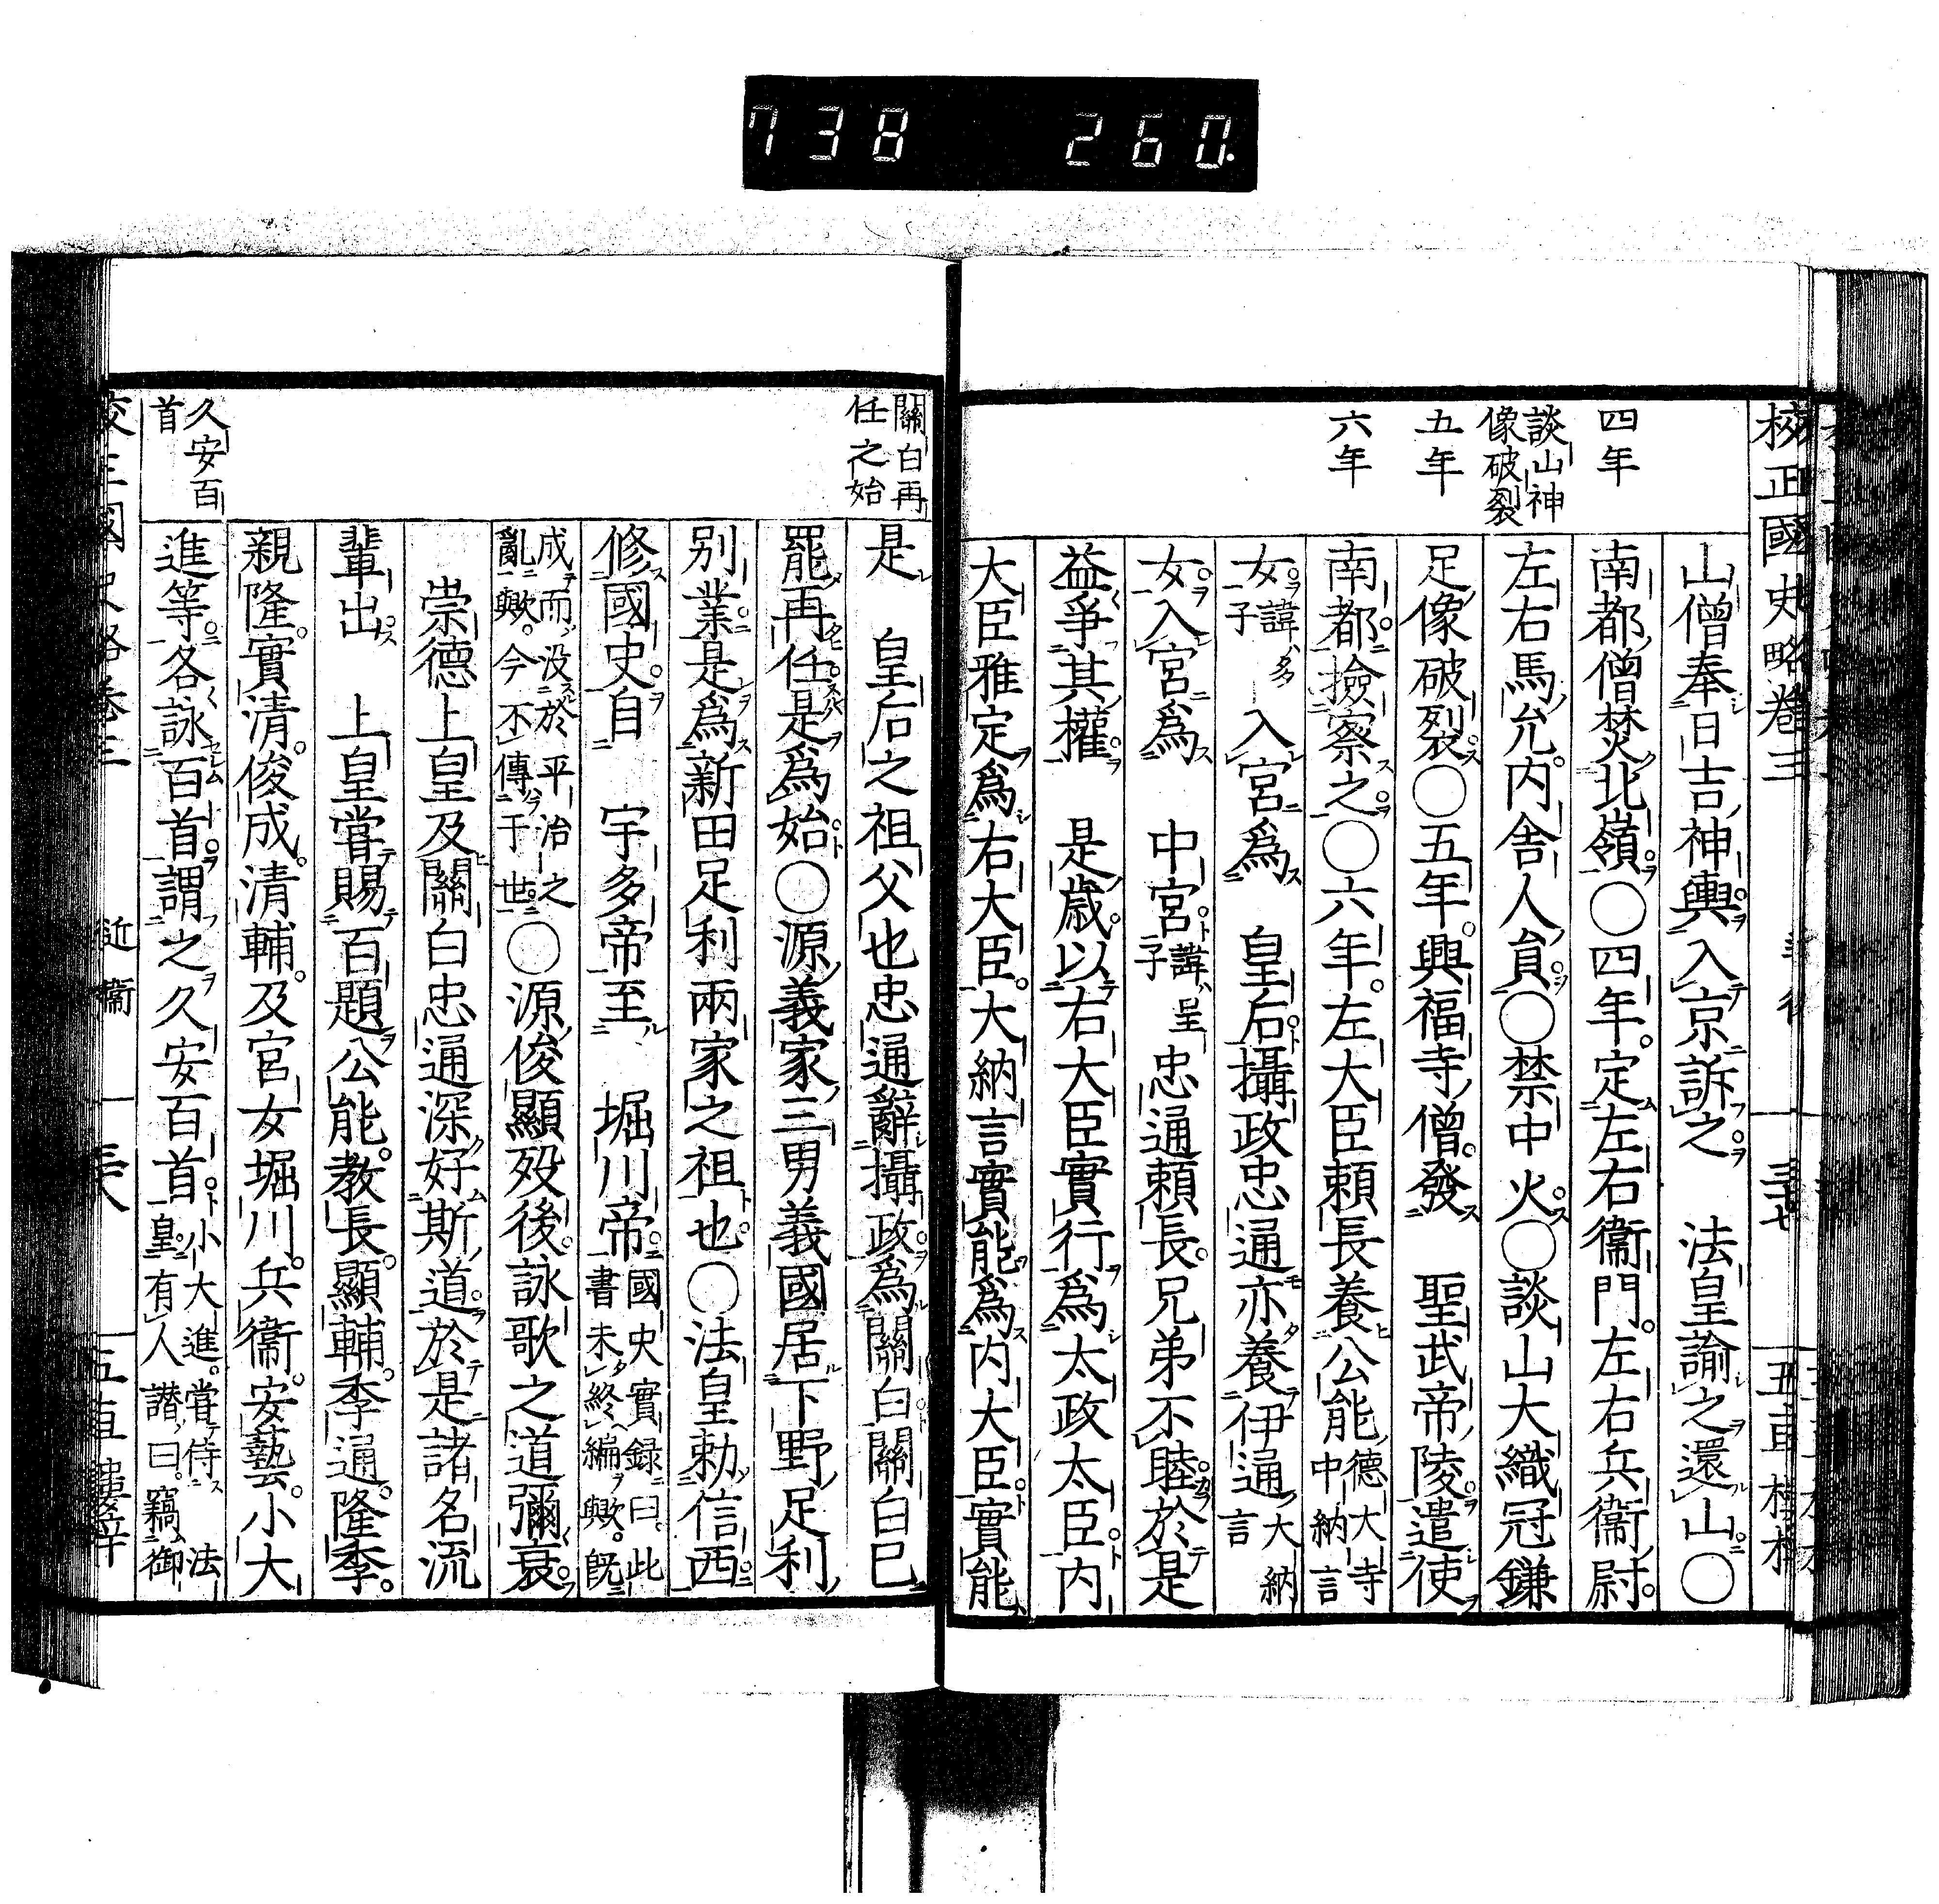 738 260.
校正國史略卷三
四年
談山神
像破裂
五年
六年
山僧奉日吉神輿入京訴之 法皇諭之還山○
南都僧焚北嶺○四年定左右衞門左右兵衞尉
左右馬允内舎人員○禁中火○談山大織冠鎌
足像破裂○五年興福寺僧發 聖武帝陵遣使
南都撿察之○六年左大臣頼長養公能德大寺中納言
女諱多子入宮爲 皇后攝政忠通亦養伊通大納言
女入宮爲 中宮諱呈子忠通頼長兄弟不睦於是
益爭其權 是歳以右大臣實行爲太政大臣内
大臣雅定爲右大臣大納言實能爲内大臣實能
關白再
任之始
是 皇后之祖父也忠通辭攝政爲關白關白已
罷再任是爲始○源義家三男義國居下野足利
別業是爲新田足利兩家之祖也○法皇勅信西
修國史自 宇多帝至 堀川帝國史實録曰此書未終編歟既
成而没於平治之亂歟今不傳于世○源俊顯歿後詠歌之道彌衰
崇德上皇及關白忠通深好斯道於是諸名流
輩出 上皇嘗賜百題公能教長顯輔季通隆季
親隆實清俊成清輔及宮女堀川兵衞安藝小大
進等各詠百首謂之久安百首小大進嘗侍法皇有人譖曰竊御
久安百
首
近衞